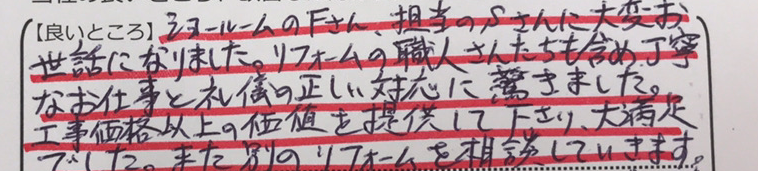 【良いところ】ショールームのFさん、担当のSさんに大変お
世話になりました。リフォームの職人さんたちも含め、丁寧
なお仕事と礼儀の正しい対応に驚きました。
工事価格以上の価値を提供して下さり、大満足
でした。また別のリフォームを相談していきます。